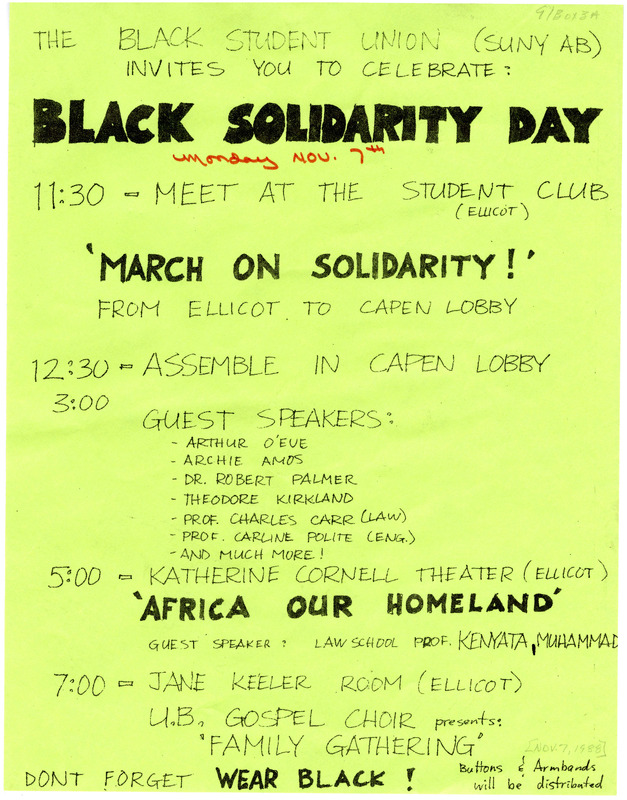 9/BOX3A
THE BLACK STUDENT UNION (SUNY AB)
INVITES YOU TO CELEBRATE:
BLACK SOLIDARITY DAY
Monday NOV. 7th
11:30 - MEET AT THE STUDENT CLUB
(ELLICOT)
'MARCH ON SOLIDARITY!'
FROM ELLICOT TO CAPEN LOBBY
12:30 - ASSEMBLE IN CAPEN LOBBY
3:00
GUEST SPEAKERS:
- ARTHUR O'EVE
- ARCHIE AMOS
- DR. ROBERT PALMER
- THEODORE KIRKLAND
- PROF. CHARLES CARR (LAW)
- PROF. CARLINE POLITE (ENG.)
- AND MUCH MORE!
5:00 - KATHERINE CORNELL THEATER (ELLICOT)
'AFRICA OUR HOMELAND'
GUEST SPEAKER: LAW SCHOOL PROF. KENYATA, MUHAMMAD
7:00 - JANE KEELER ROOM (ELLICOT)
U.B. GOSPEL CHOIR presents:
"FAMILY GATHERING"
[NOV. 7, 1988]
DONT FORGET WEAR BLACK!
Buttons & Armbands
will be distributed